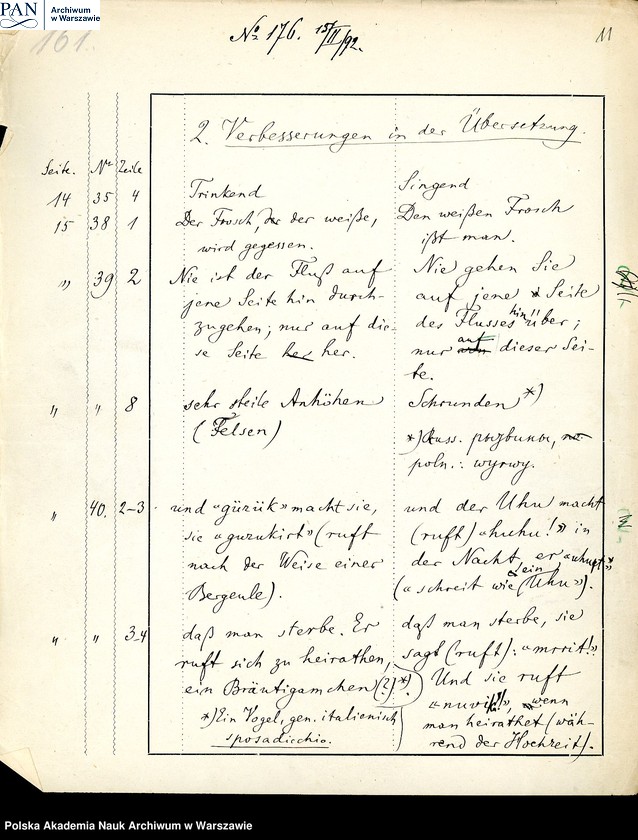 PAN
Archiwum
w Warszawie
161.
No 176. 15/II/92.
11
2. Verbesserungen in der Übersetzung.
Seite. No Zeile
14 35 4 Trinkend
Singend
15 38 1 Der Frosch, der der weiße,
wird gegessen.
Den weißen Frosch
ißt man.
" 39 2 Nie ist der Fluß auf
jene Seite hin durch-
zugehen; nur auf die-
se Seite her her.
Nie gehen Sie
auf jene Seite
des Flusses hinüber;
nur auf dieser Sei-
te.
" " 8 sehr steile Anhöhen
(Felsen)
Schrunden *)
*) Russ. розбины,
poln.: wyrwy.
" 40. 2-3. und «gürük» macht sie,
sie «guzukirt» (ruft
nach der Weise einer
Bergeule).
und der Uhu macht
(ruft) «huhu!» in
der Nacht, er «uhupt»
(«schreit wie ein Uhu»).
" " 3-4 daß man sterbe. Er
ruft sich zu heirathen,
ein Bräutigamchen (?) *).
*) Ein Vogel, gen. italienisch
sposadicchio.
daß man sterbe, sie
sagt (ruft): «mrrit!»
Und sie ruft
wenn
man heirathet (wäh-
rend der Hochzeit).
Polska Akademia Nauk Archiwum w Warszawie